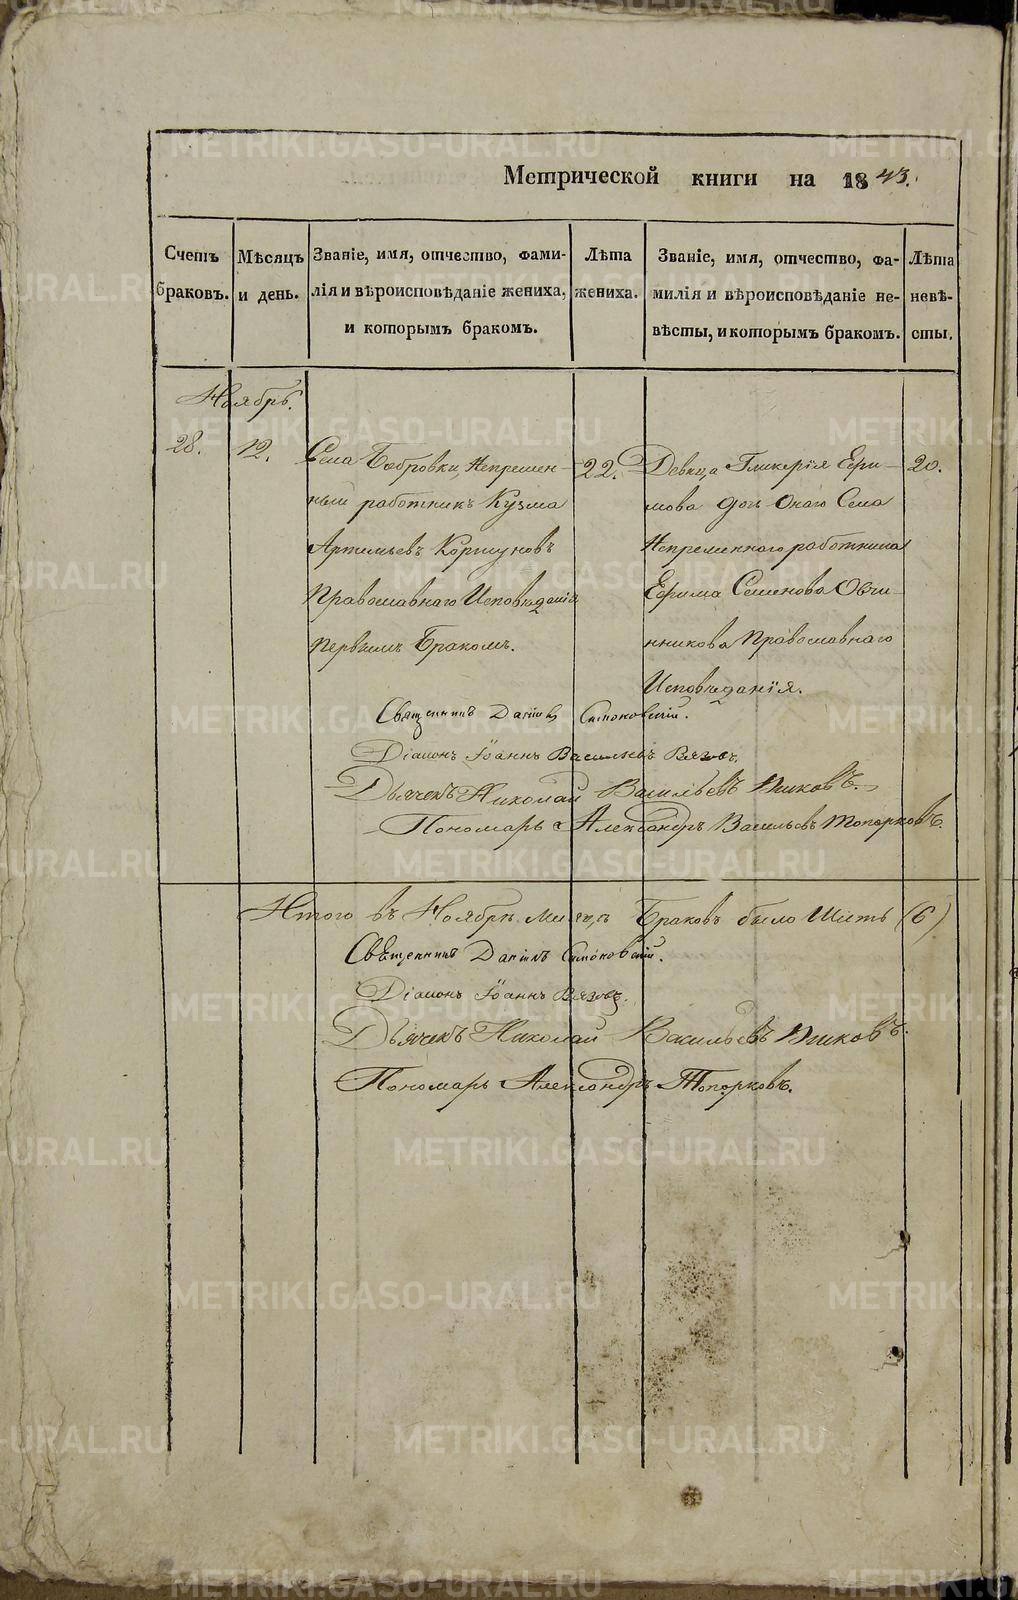 Метрической книги на 1843.
Счетъ браковъ.
Мѣсяцъ и день.
Званіе, имя, отчество, фами-
лія и вѣроисповѣданіе жениха,
и которымъ бракомъ.
Лѣта жениха.
Званіе, имя, отчество, фа-
милія и вѣроисповѣданіе не-
вѣсты, и которымъ бракомъ.
Лѣта невѣ-
сты.
Ноябрь.
28.
12.
Села Бобровки, Непремен-
ный работникъ Кузма
Артемьевъ Коршуновъ
Православнаго Исповѣданія
первымъ Бракомъ.
22.
Девица Гликерія Ефи-
мова дочь Онаго Села
Непременнаго работника
Ефима Семенова Овчи-
нникова Православнаго
Исповѣданія.
20.
Священникъ Даніилъ
Діаконъ Іоаннъ Васильевъ Вязовъ.
Дьячекъ Николай Васильевъ
Пономарь Александръ Васильевъ Топорковъ.
Итого въ Ноябрѣ Месяцѣ Браковъ было Шесть (6)
Священникъ Даніилъ
Діаконъ Іоаннъ Вязовъ.
Дьячекъ Николай Васильевъ
Пономарь Александръ Топорковъ.
METRIKI.GASO-URAL.RU